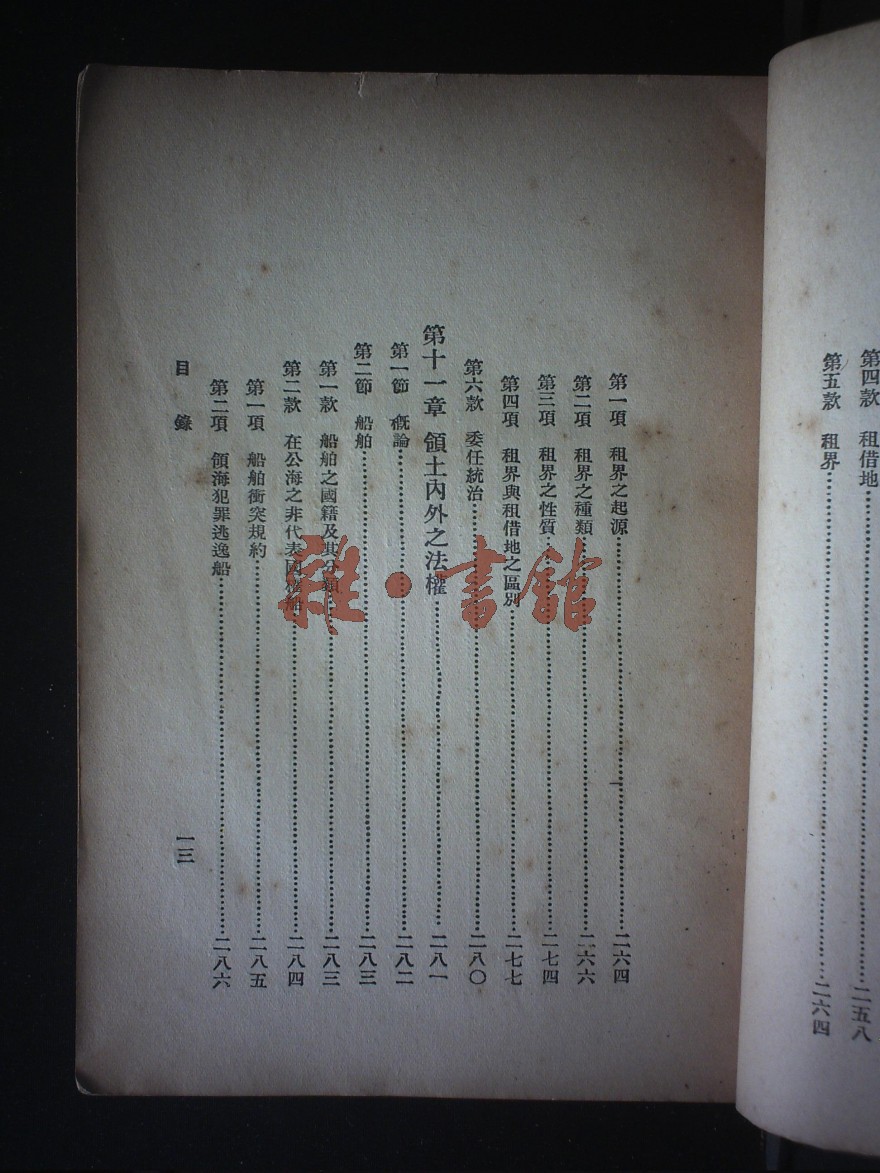 第四款　租借地……二五八
第五款　租界……二六四
第一項　租界之起源……二六四
第二項　租界之種類……二六六
第三項　租界之性質……二七四
第四項　租界與租借地之區別……二七七
第六款　委任統治……二八〇
第十一章　領土內外之法權……二八一
第一節　概論……二八二
第二節　船舶……二八三
第一款　船舶之國籍及其分類……二八三
第二款　在公海之非代表國權船……二八四
第一項　船舶衝突規約……二八五
第二項　領海犯罪逃逸船……二八六
目錄
一三
雜·書館